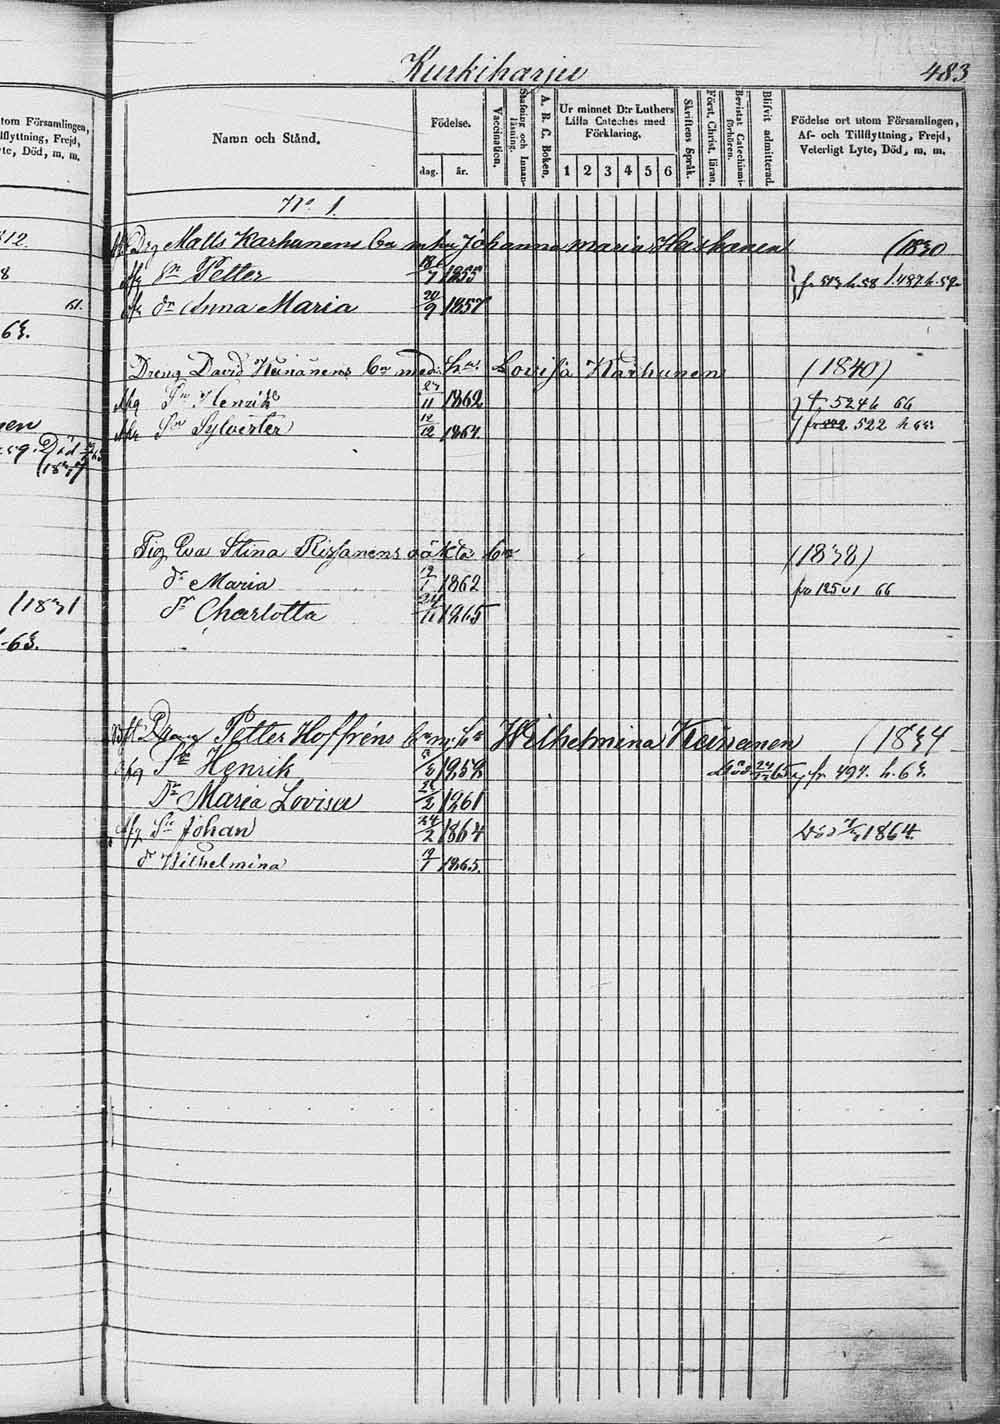 Kurkiharju 483
utom Församlingen,
illflyttning, Frejd,
yte, Död, m. m.
812.
8
61.
63.
nen
59. Död
(1837
(1831
-63.
Namn och Stånd.
Födelse.
dag. år.
Vaccination.
Stafning och Innanläsning.
A. B. C. Boken.
Ur minnet D:r Luthers
Lilla Cateches med
Förklaring.
1 2 3 4 5 6
Skriftens Språk.
Först. Christ. läran.
Bevistat Catechismiförhören.
Blifvit admitterad.
Födelse ort utom Församlingen,
Af- och Tillflyttning, Frejd,
Veterligt Lyte, Död, m. m.
No. 1.
Drg Matts Karhunens bn m hu Johanna Maria Haikanen (1830
afg Sn Petter 18/7 1855 fr 513 h. 58 t. 487 h. 59.
afg dr Anna Maria 20/9 1857
Dreng David Keinänens bn med hu Lovisa Karhunen (1840)
afg Sn Henrik 27/11 1862 t 524 h 66
afg Sn Sylvester 19/12 1864. fr 522 h 63
Pig Eva Stina Rissanens oäkta bn (1838)
dr Maria 19/1 1862 fr 125 v 1 66
dr Charlotta 24/11 1865
Dreng Petter Hoffréns bn m. hu Wilhelmina Keinänen (1834
afg Sn Henrik 1859 Död 24/12 65 fr. 494. h. 63.
Dr Maria Lovisa 1861
afg Sn Johan 24/2 1864 Död 1864.
dr Wilhelmina 19/1 1865.